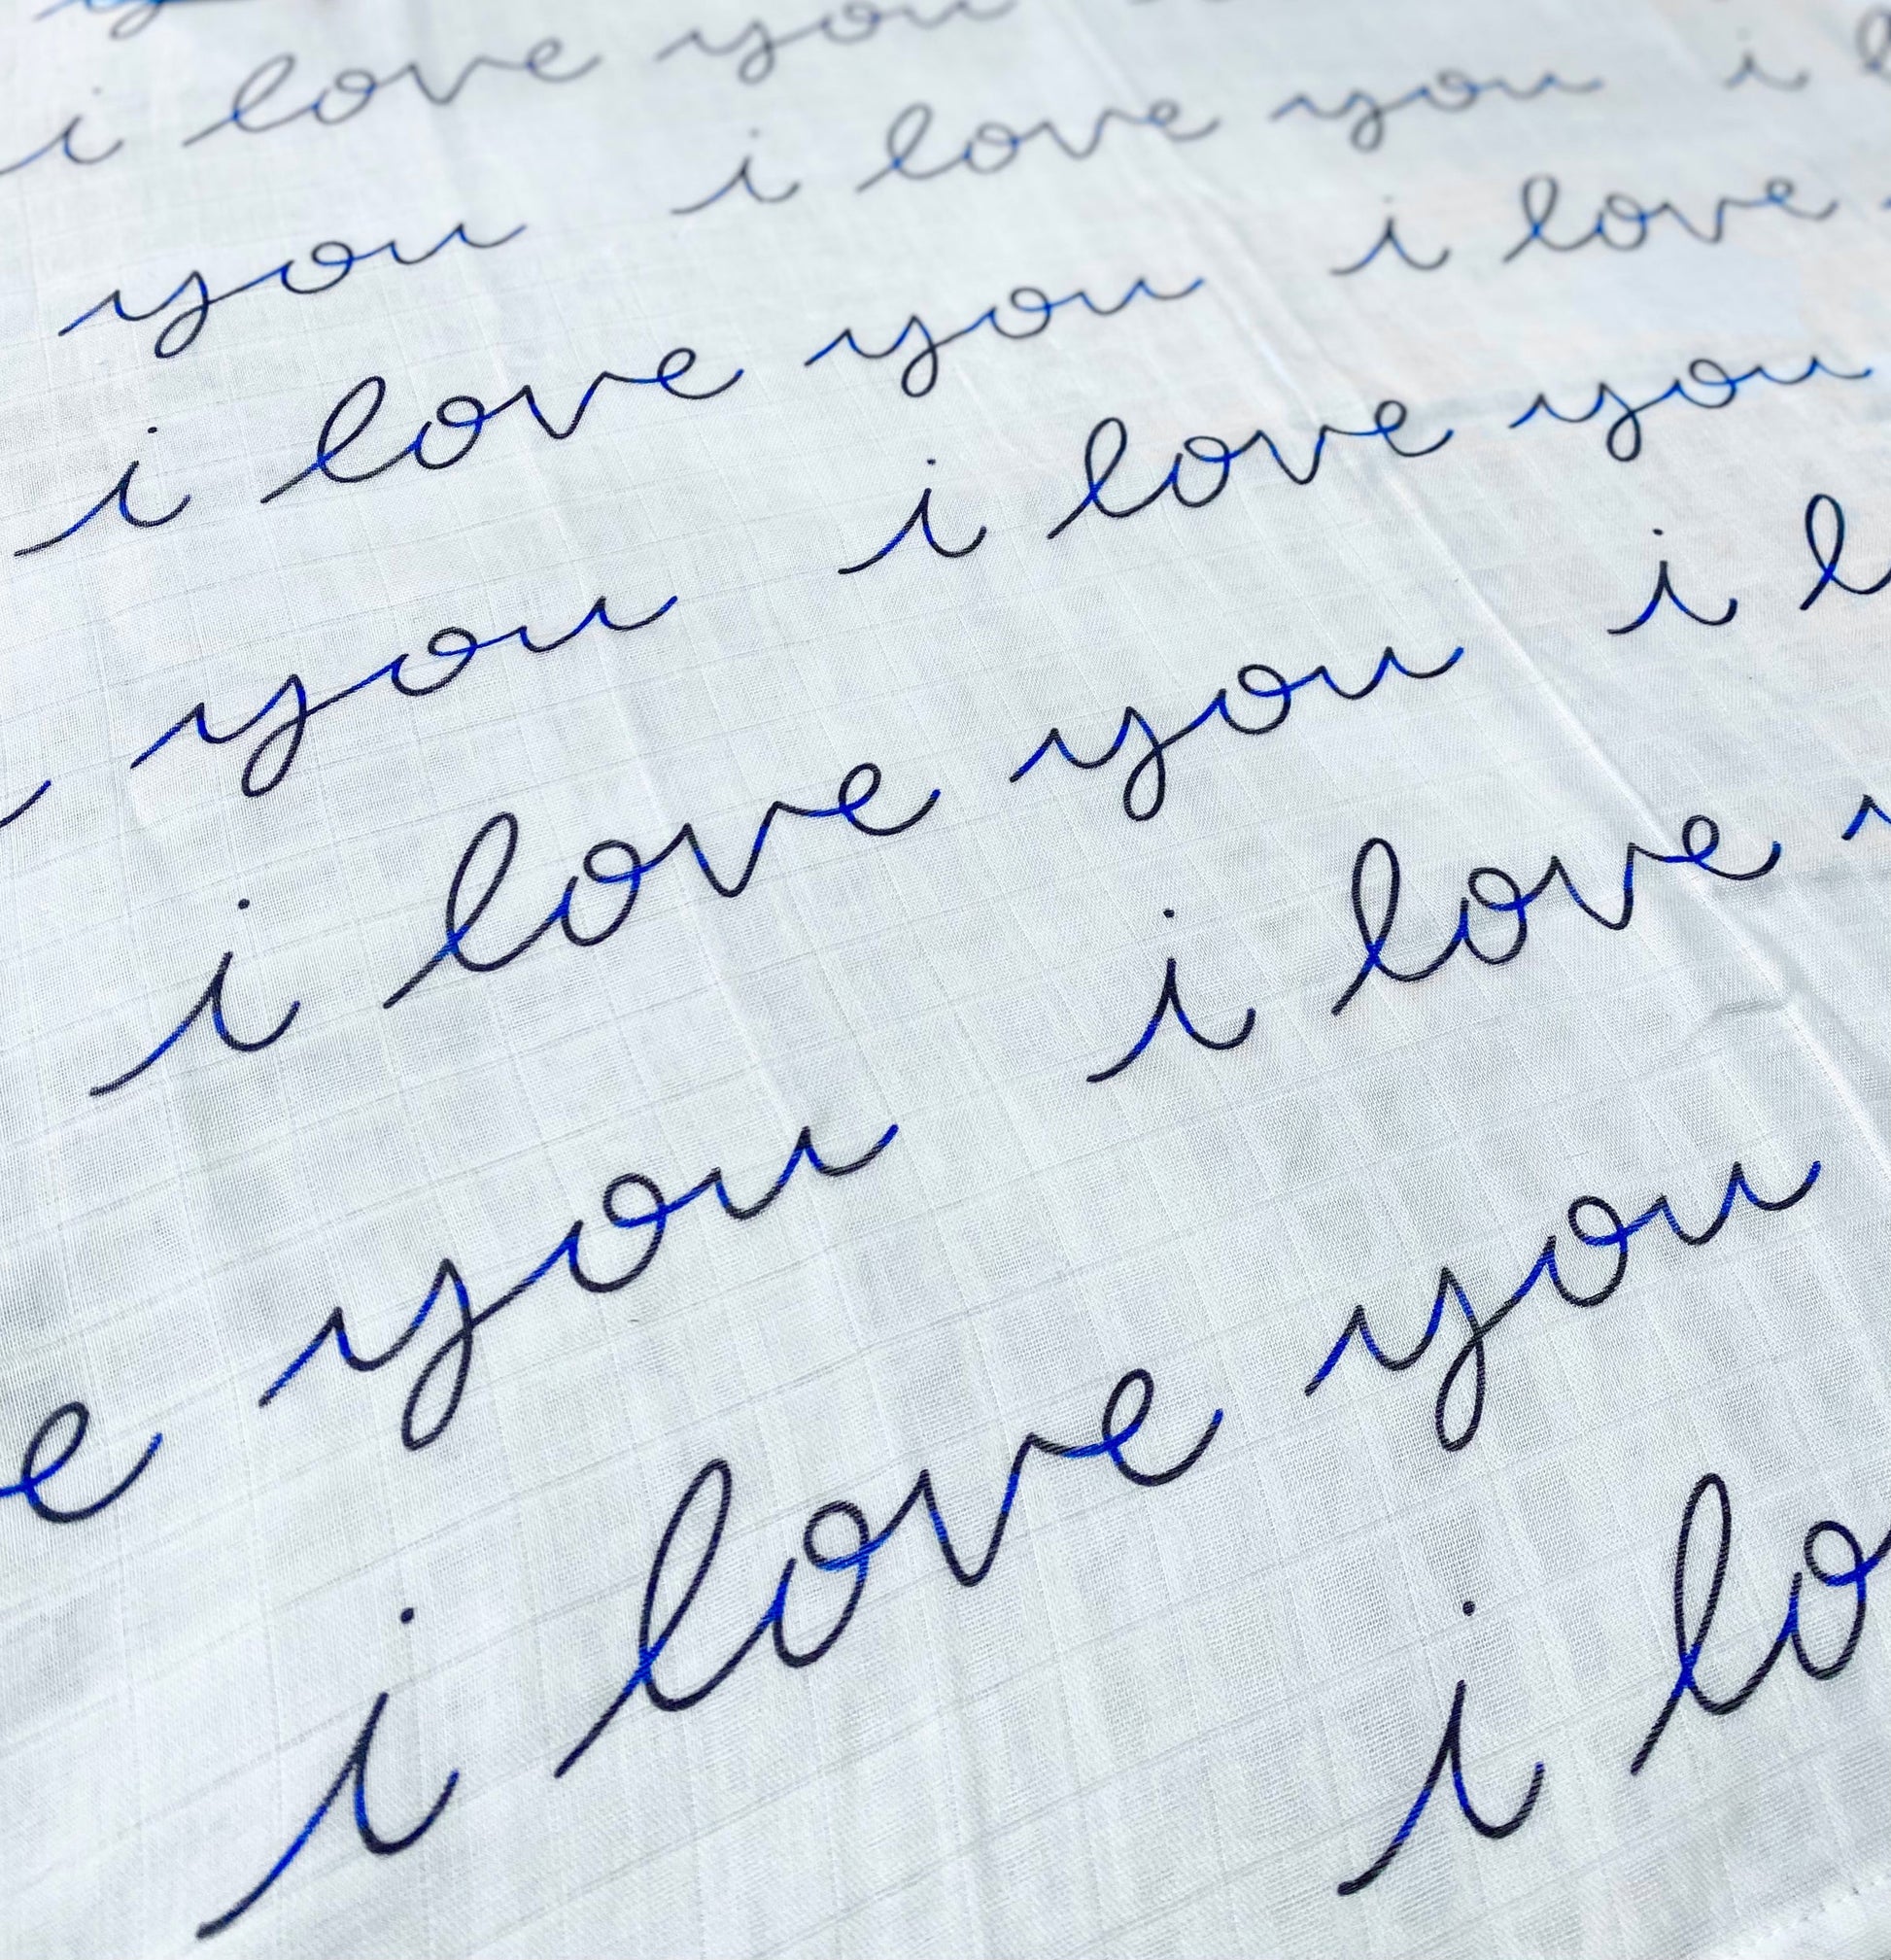 i love you
you i love you i l
i love you i love
you i love you
i love you i l
e you i love
i love you
i lo